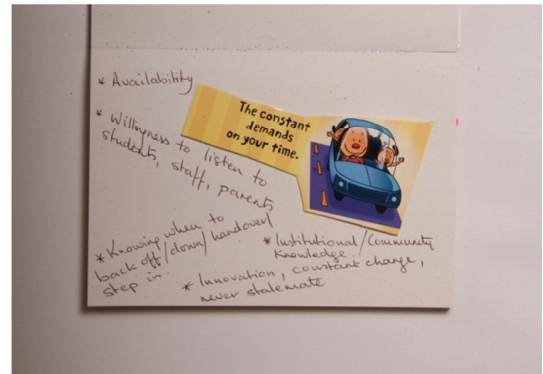 * Availability
The constant
demands
on your time.
* Willingness to listen to
students, staff, parents
* Knowing when to
back off/down/handover/
step in.
* Institutional/Community
Knowledge.
* Innovation, constant change,
never stalemate